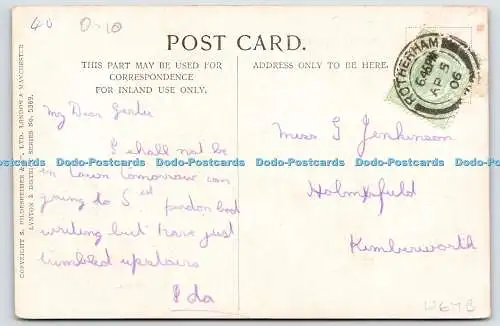 40 0-10
POST CARD.
THIS PART MAY BE USED FOR
CORRESPONDENCE
FOR INLAND USE ONLY.
ADDRESS ONLY TO BE HERE.
ROTHERHAM
AP 5
06
COPYRIGHT S. HILDESHEIMER & CO., LTD. LONDON & MANCHESTER
LYNTON & DISTRICT SERIES No. 5369.
My Dear Gertie
I shall not be
in town tomorrow am
going to S pardon bad
writing but have just
tumbled upstairs
Ida
Miss G Jenkinson
Holmfield
Kimberworth
Dodo-Postcards Dodo-Postcards Dodo-Postcards Dodo-Postcards Dodo-Postcards